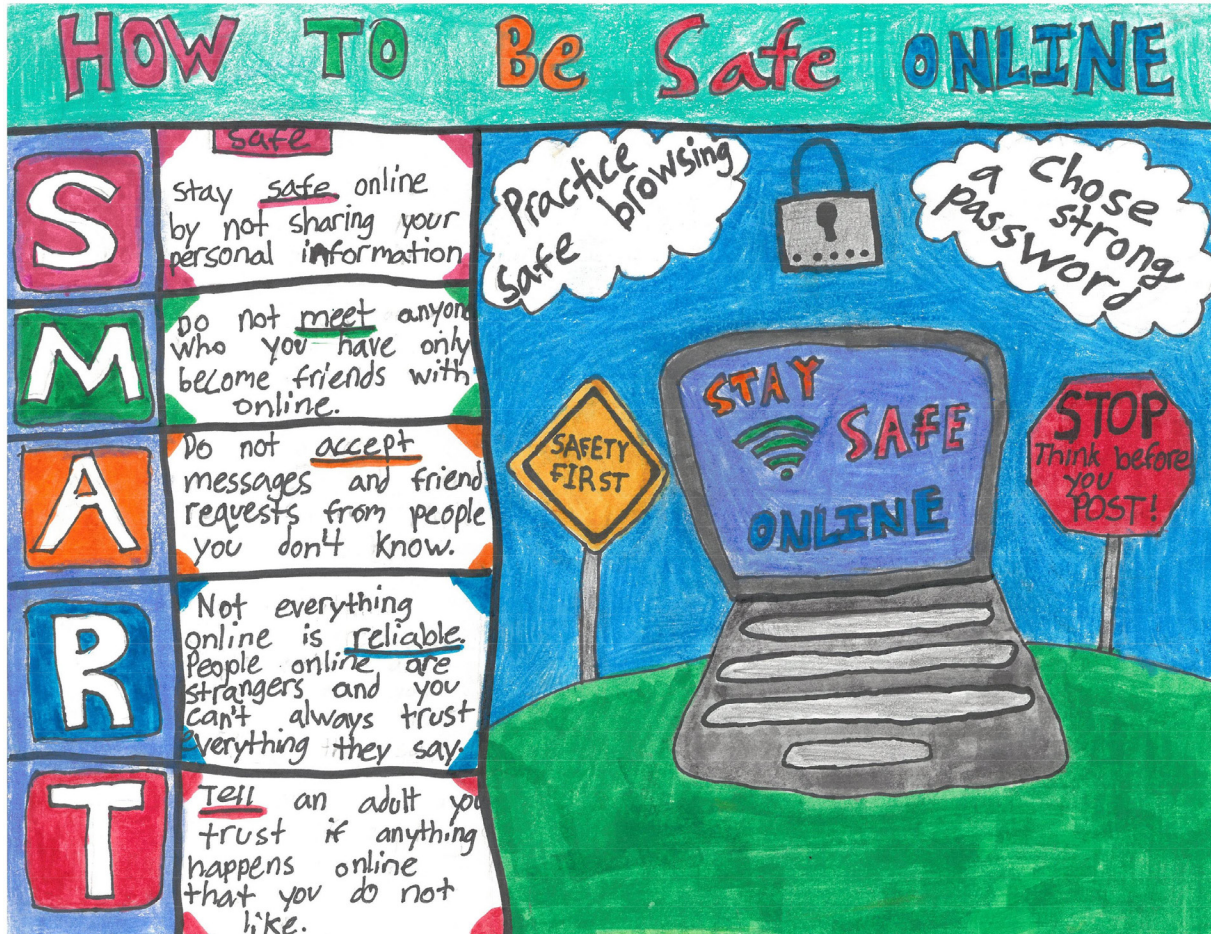 HOW TO Be Safe ONLINE
S
safe
Stay safe online
by not sharing your
personal information
M
Do not meet anyone
who you have only
become friends with
online.
A
Do not accept
messages and friend
requests from people
you don't know.
R
Not everything
online is reliable.
People online are
strangers and you
can't always trust
everything they say.
T
Tell an adult you
trust if anything
happens online
that you do not
like.
Practice
Safe browsing
a Chose
strong
password
SAFETY
FIRST
STAY
SAFE
ONLINE
STOP
Think before
you
POST!